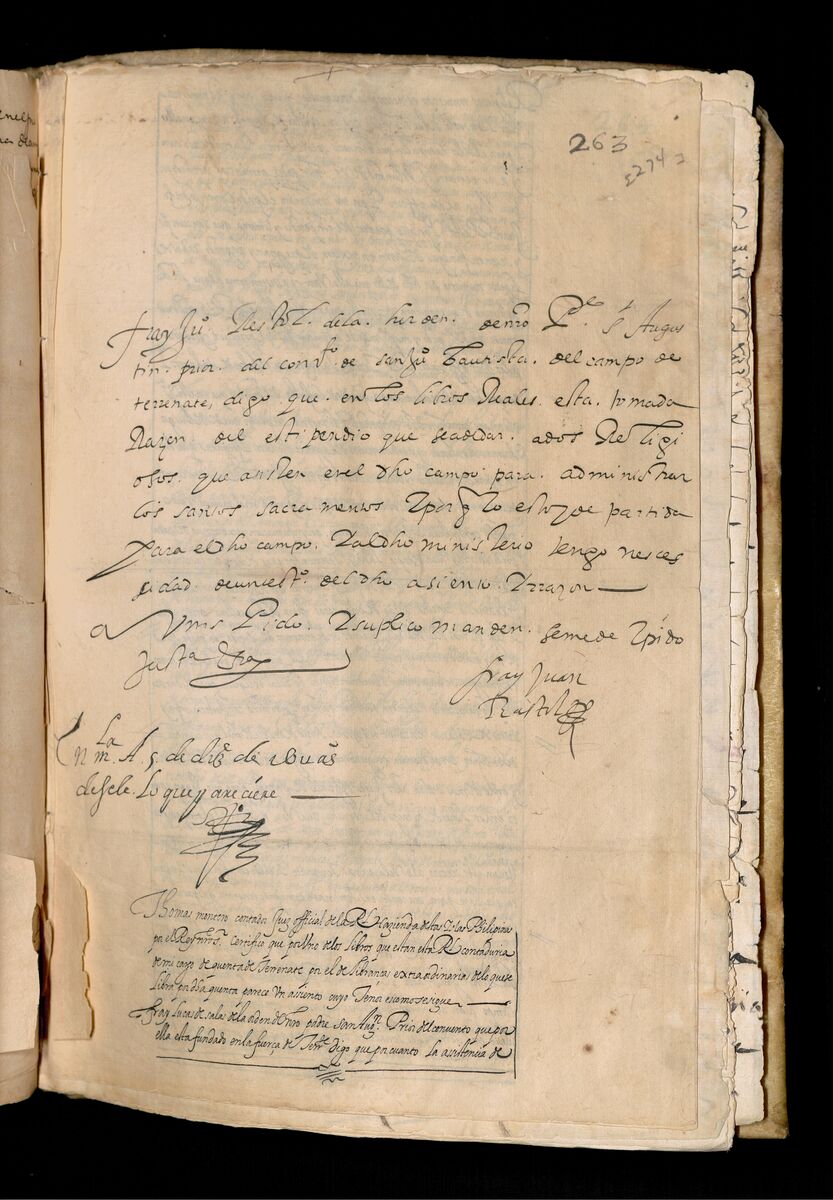 263
274
Fray Juº Restol. dela. horden. denrō Pe Sʳ Augus
tin. prior. del convᵗᵒ de san Juº bautista. del campo de
terrenate, digo que. en los libros Reales. esta. tomada
Razon del estipendio que seadedar. ados Religi
osos. que asisten enel dho campo para. administrar
los santos sacramentos Y por q̄ Yo estoy de partida
para el dho campo. Y al dho ministerio tengo nesces
sidad. de un testº. del dho asiento. Y razon
a Vms Pido. Y suplico manden. se me de Y pido
Justa
fray Juan
Restol
En mˡᵃ A 5 de dizᵉ de
desele. lo que pareciere
Thomas montero contador Juez official de la Rˡ Hazienda destas Yslas Philipinas
por el Rey nrō sʳ. Certifico que por Uno de los libros que estan en la Rˡ contaduria
de mi cargo de quenta de Terrenate por el de librancas extraordinarias de lo que se
libra por dha quenta parece Un asiento cuyo Tenor es como se sigue
fray Lucas de salas de la orden de nrō padre san Augⁿ. Prior del convento que por
ella esta fundado en la fuerça de Terrᵗᵉ digo que por cuanto la assistencia de